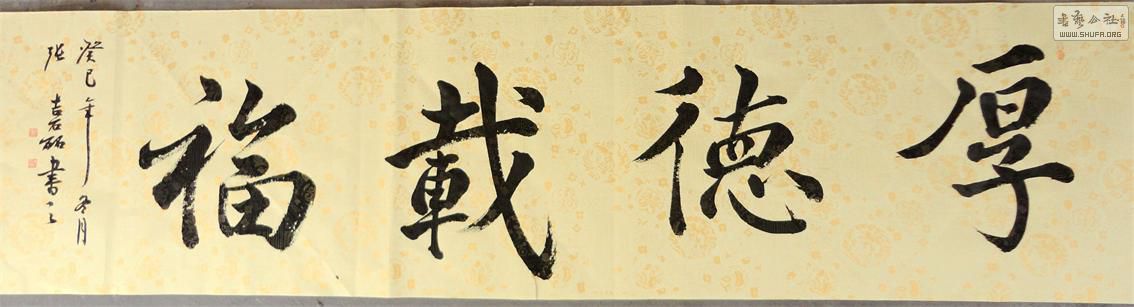 厚德載福
癸巳年冬月
張嘉硕書之
書藝公社
WWW.SHUFA.ORG